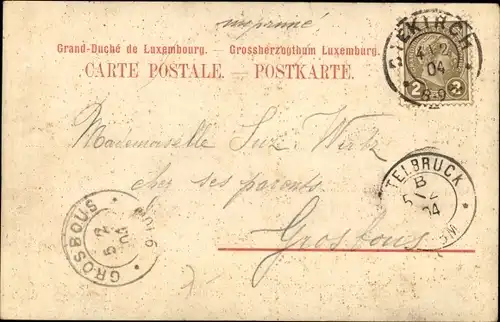 imprimé
Grand-Duché de Luxembourg. — Grossherzogthum Luxemburg.
CARTE POSTALE. — POSTKARTE.
DIEKIRCH
04
2 2
Mademoiselle Suz. Wirtz
chez ses parents
Grosbous
GROSBOUS
5 2
04
TELBRUCK
B
5 2
04